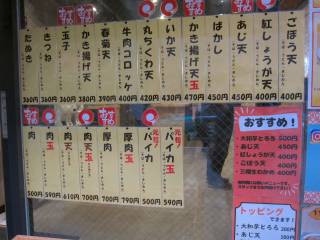 ごぼう天
400円
紅しょうが天
400円
あじ天
450円
ばかし
450円
かき揚げ天玉
470円
いか天
430円
丸ちくわ天
400円
牛肉コロッケ
400円
春菊天
390円
かき揚げ天
380円
玉子
360円
きつね
360円
たぬき
360円
おすすめ
元祖!
パイカ玉
590円
元祖!
パイカ
500円
厚肉玉
790円
厚肉
700円
肉天玉
700円
肉天
610円
肉玉
590円
肉
500円
おすすめ!
・大和芋とろろ 500円
・あじ天 450円
・紅しょうが天 400円
・ごぼう天 400円
・三陸生わかめ 400円
トッピング
できます!
・大和芋とろろ
・あじ天